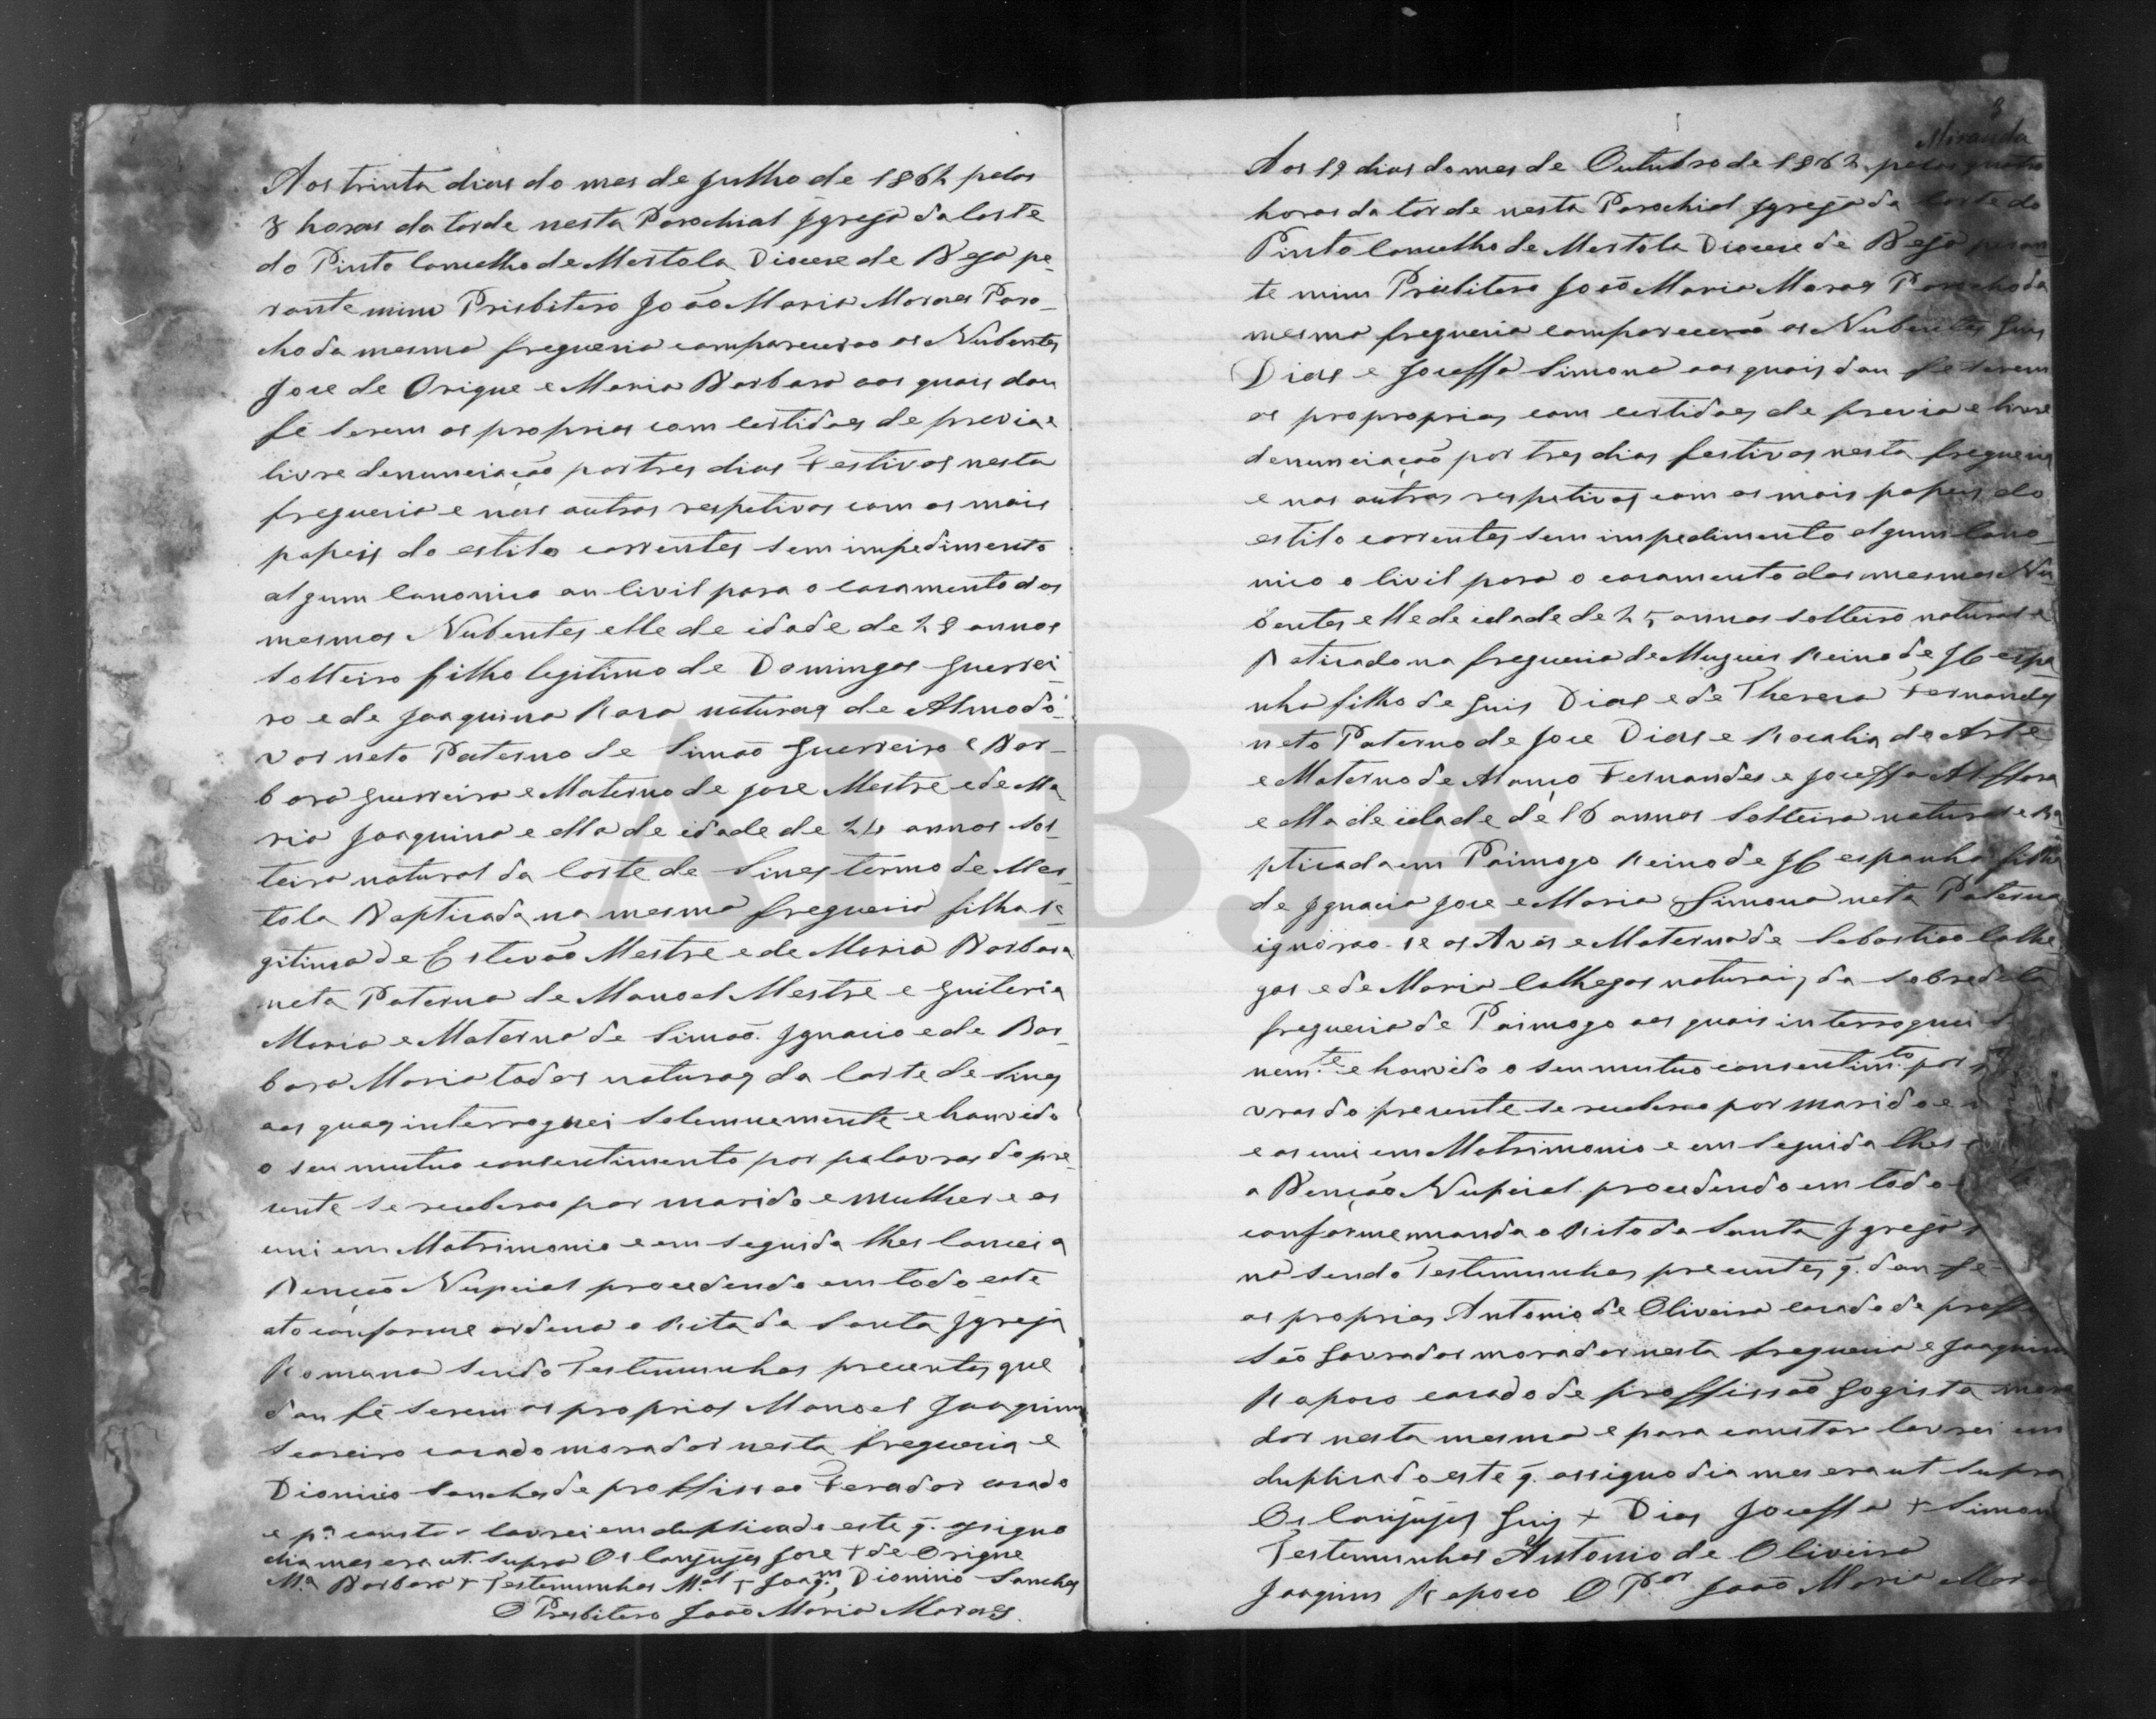 Aos trinta dias do mes de Julho de 1862 pelas
8 horas da tarde nesta Parochial Igreja da Corte
do Pinto Concelho de Mertola Diocese de Beja pe-
rante mim Prisbitero João Maria Moraes Paro-
cho da mesma freguesia comparecerao os Nubentes
Jose de Orique e Maria Barbara aos quais dou
fé serem os proprios com certidoes de previa e
livre denunciação por tres dias Festivos nesta
freguesia e nas outras respetivas com os mais
papeis do estilo correntes sem impedimento
algum Canonico ou Civil para o casamento dos
mesmos Nubentes elle de idade de 28 annos
solteiro filho legitimo de Domingos Guerrei-
ro e de Joaquina Rosa naturaes de Almodo-
var neto Paterno de Simaõ Guerreiro e Bar-
bara Guerreira e Materno de Jose Mestre e de Ma-
ria Joaquina e ella de idade de 24 annos sol-
teira natural da Corte de Sines termo de Mer-
tola Baptisada na mesma freguesia filha le-
gitima de Estevão Mestre e de Maria Barbara
neta Paterna de Manoel Mestre e Guiteria
Maria e Materna de Simaõ Ignacio e de Bar-
bara Maria todos naturaes da Corte de Sines
aos quaes interroguei solemnemente e houvido
o seu mutuo consentimento por palavras do pre-
sente se receberao por marido e mulher e os
uni em Matrimonio e em seguida lhes lancei a
Benção Nupcial procedendo em todo este
ato conforme ordena o Rito da Santa Igreja
Romana sendo Testemunhas presentes que
dou fé serem os proprios Manoel Joaquim
Seareiro casado morador nesta freguesia e
Dionisio Sanches de proffissao Ferador casado
e pª constar lavrei em duplicado este q. assigno
dia mes era ut supra Os Conjujes Jose + de Orique
Mª Barbara + Testemunhas M.el + Joaq.m, Dionisio Sanches
O Presbitero João Maria Moraes.
8
Miranda
Aos 19 dias do mes de Outubro de 1862 pelas quatro
horas da tarde nesta Parochial Igreja da Corte do
Pinto Concelho de Mertola Diocese de Beja peran-
te mim Prisbitero João Maria Moraes Parocho da
mesma freguesia comparecerão os Nubentes Luis
Dias e Joseffa Simona aos quais dou fe serem
os proproprios com certidoes de previa e livre
denunciação por tres dias festivos nesta freguesia
e nas outras respetivas com os mais papeis do
estilo correntes sem impedimento algum Cano-
nico o Civil para o casamento dos mesmos Nu-
bentes elle de idade de 25 annos solteiro natural e
Batisado na freguesia de Reino de Hespa-
nha filho de Luis Dias e de Theresa Fernandes
neto Paterno de Jose Dias e Rosalia de Arte
e Materno de Fernandes e Joseffa
e ella de idade de 18 annos solteira natural e Ba-
ptisada em Paimogo Reino de Hespanha filha
de Ignacio Jose e Maria Simona neta Paterna
ignorao-se os Avós e Materna de Sebastiao Calhe-
gos e de Maria Calhegos naturais da sobredita
freguesia de Paimogo aos quais interroguei
nem.te e houvido o seu mutuo consentim.to por
vras do presente se receberao por marido e
e os uni em Matrimonio e em seguida lhes
a Benção Nupcial procedendo em todo
conforme manda o Rito da Santa Igreja
na sendo Testemunhas presentes q. dou fe
os proprios Antonio de Oliveira casado de proffi-
são Lavrador morador nesta freguesia e Joaquim
Raposo casado de proffissão Logista mora-
dor nesta mesma e para constar lavrei em
duplicado este q. assigno dia mes era ut supra
Os Conjujes Luis + Dias Joseffa + Simona
Testemunhas Antonio de Oliveira
Joaquim Raposo O P.or João Maria Moraes
ADBJA